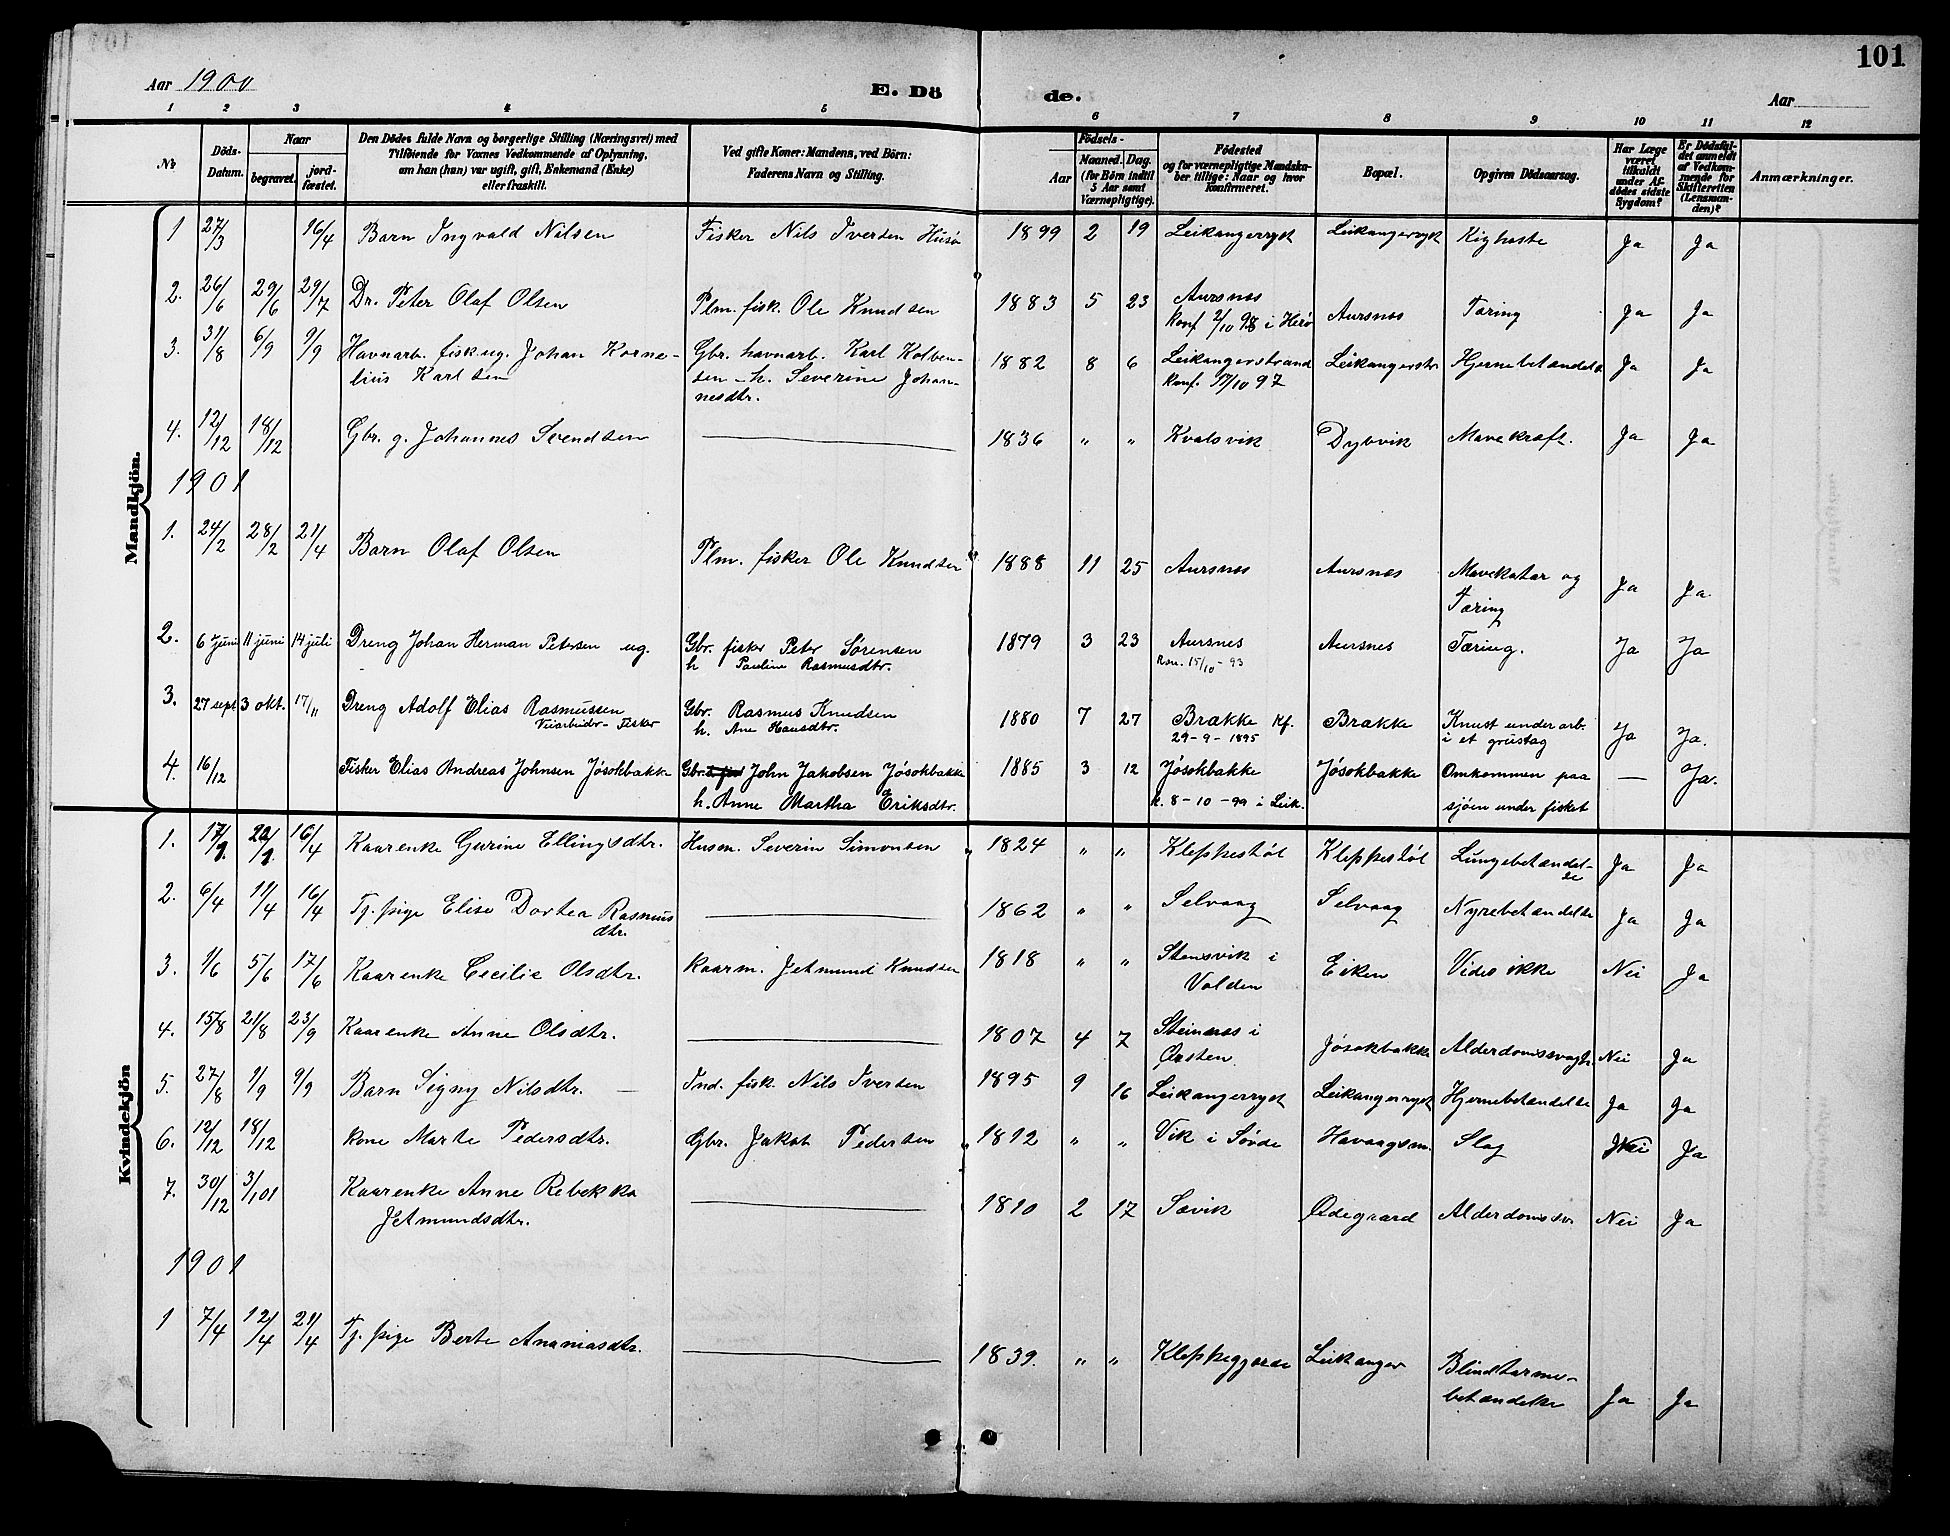 101
Aar 1900
E. Dö
de.
Aar
1 2 3 4 5 6 7 8 9 10 11 12
Nr.
Döds-
Datum.
Naar
begravet.
jord-
fæstet.
Den Dödes fulde Navn og borgerlige Stilling (Næringsvei) med
Tilföiende for Voxnes Vedkommende af Oplysning,
om han (hun) var ugift, gift, Enkemand (Enke)
eller fraskilt.
Ved gifte Koner: Mandens, ved Börn:
Faderens Navn og Stilling.
Födsels-
Aar
Maaned. Dag.
(for Börn indtil
5 Aar samt
Værnepligtige).
Födested
og for værnepligtige Mandska-
ber tillige: Naar og hvor
konfirmeret.
Bopæl.
Opgiven Dödsaarsag.
Har Læge
været
tilkaldt
under Af-
dödes sidste
Sygdom?
Er Dödsfal-
det anmeldt
af Vedkom-
mende for
Skifteretten
(Lensman-
den)?
Anmærkninger.
Mandkjön.
1 27/3 16/4 Barn Ingvald Nilsen Fisker Nils Iversen Husø 1899 2 19 Leikangerryst Leikangerryst Kighoste Ja Ja
2. 26/6 29/6 29/7 Dr. Peter Olaf Olsen Plm. fisk. Ole Knudsen 1883 5 23 Aursnes Aursnes Tæring Ja Ja
konf 2/10 98 i Herø
3. 31/8 6/9 9/9 Havnarb. fisk. ug. Johan Korne- Gbr. havnarb. Karl Kolben- 1882 8 6 Leikangerstrand Leikangerstr. Hjernebetændelse Ja Ja
lius Karlsen sen - h. Severine Johan- konf. 17/10 97
nesdtr.
4. 12/12 18/12 Gbr. g. Johannes Svendsen 1836 " " Kvalsvik Dybvik Mavekræft. Ja Ja
1901
1. 24/2 28/2 21/4 Barn Olaf Olsen Plm. fisker Ole Knudsen 1888 11 25 Aursnes Aursnes Mavekatar og Ja Ja.
Tæring
2. 6 juni 11 juni 14 juli Dreng Johan Herman Petersen ug. Gbr. fisker Peter Sørensen 1879 3 23 Aursnes Aursnes Tæring. Ja Ja
h Pauline Rasmusdtr. 15/10 - 93
3. 27 sept 3 okt. 17/11 Dreng Adolf Elias Rasmussen Gbr. Rasmus Knudsen 1880 7 27 Brække Kf. Brække Knust under arb. Ja Ja.
Veiarbeidr - Fisker h. Ane Hansdtr. 29 - 9 - 1895 i et grustag
4. 16/12 Fisker Elias Andreas Johnsen Jøsokbakke Gbr. John Jakobsen Jøsokbakke 1885 3 12 Jøsokbakke Jøsokbakke Omkommen paa — Ja.
h. Anne Martha Eriksdtr. k. 8 - 10 - 99 i Leik. sjøen under fisket
Kvindekjön
1. 17/1. 16/4 Kaarenke Gurine Ellingsdtr. Husm. Severin Simonsen 1824 " " Kleppestøl Kleppestøl Lungebetændel- Ja Ja
se
2. 6/4 11/4 16/4 Tj. pige Elise Dortea Rasmus 1862 " " Selvaag Selvaag Nyrebetændelse Ja Ja
dtr.
3. 1/6 5/6 17/6 Kaarenke Cecilie Olsdtr. kaarm. Jetmund Knudsen 1818 " " Stensvik i Eiken Vides ikke Nei Ja
Volden
4. 15/8 21/8 23/9 Kaarenke Anne Olsdtr. 1807 4 7 Steinnes i Jøsokbakke Alderdomssvagh. Nei Ja
Ørsten
5. 27/8 1/9 9/9 Barn Signy Nilsdtr. — Ind. fisk. Nils Iversen 1895 9 16 Leikangerryst Leikangerryst Hjernebetændelse Ja Ja
6. 12/12 18/12 kone Marte Pedersdtr. Gbr. Jakob Pedersen 1812 " " Vik i Søvde Havaagsm. Slag Nei Ja
7. 30/12 3/1 01 Kaarenke Anne Rebekka 1810 2 17 Sævik Ødegaard Alderdomssv. Nei Ja
Jetmundsdtr.
1901
1 7/4 12/4 21/4 Tj. pige Berte Ananiasdtr. 1839. " " Kleppegjerde Leikanger Blindtarms- Ja Ja
betændelse